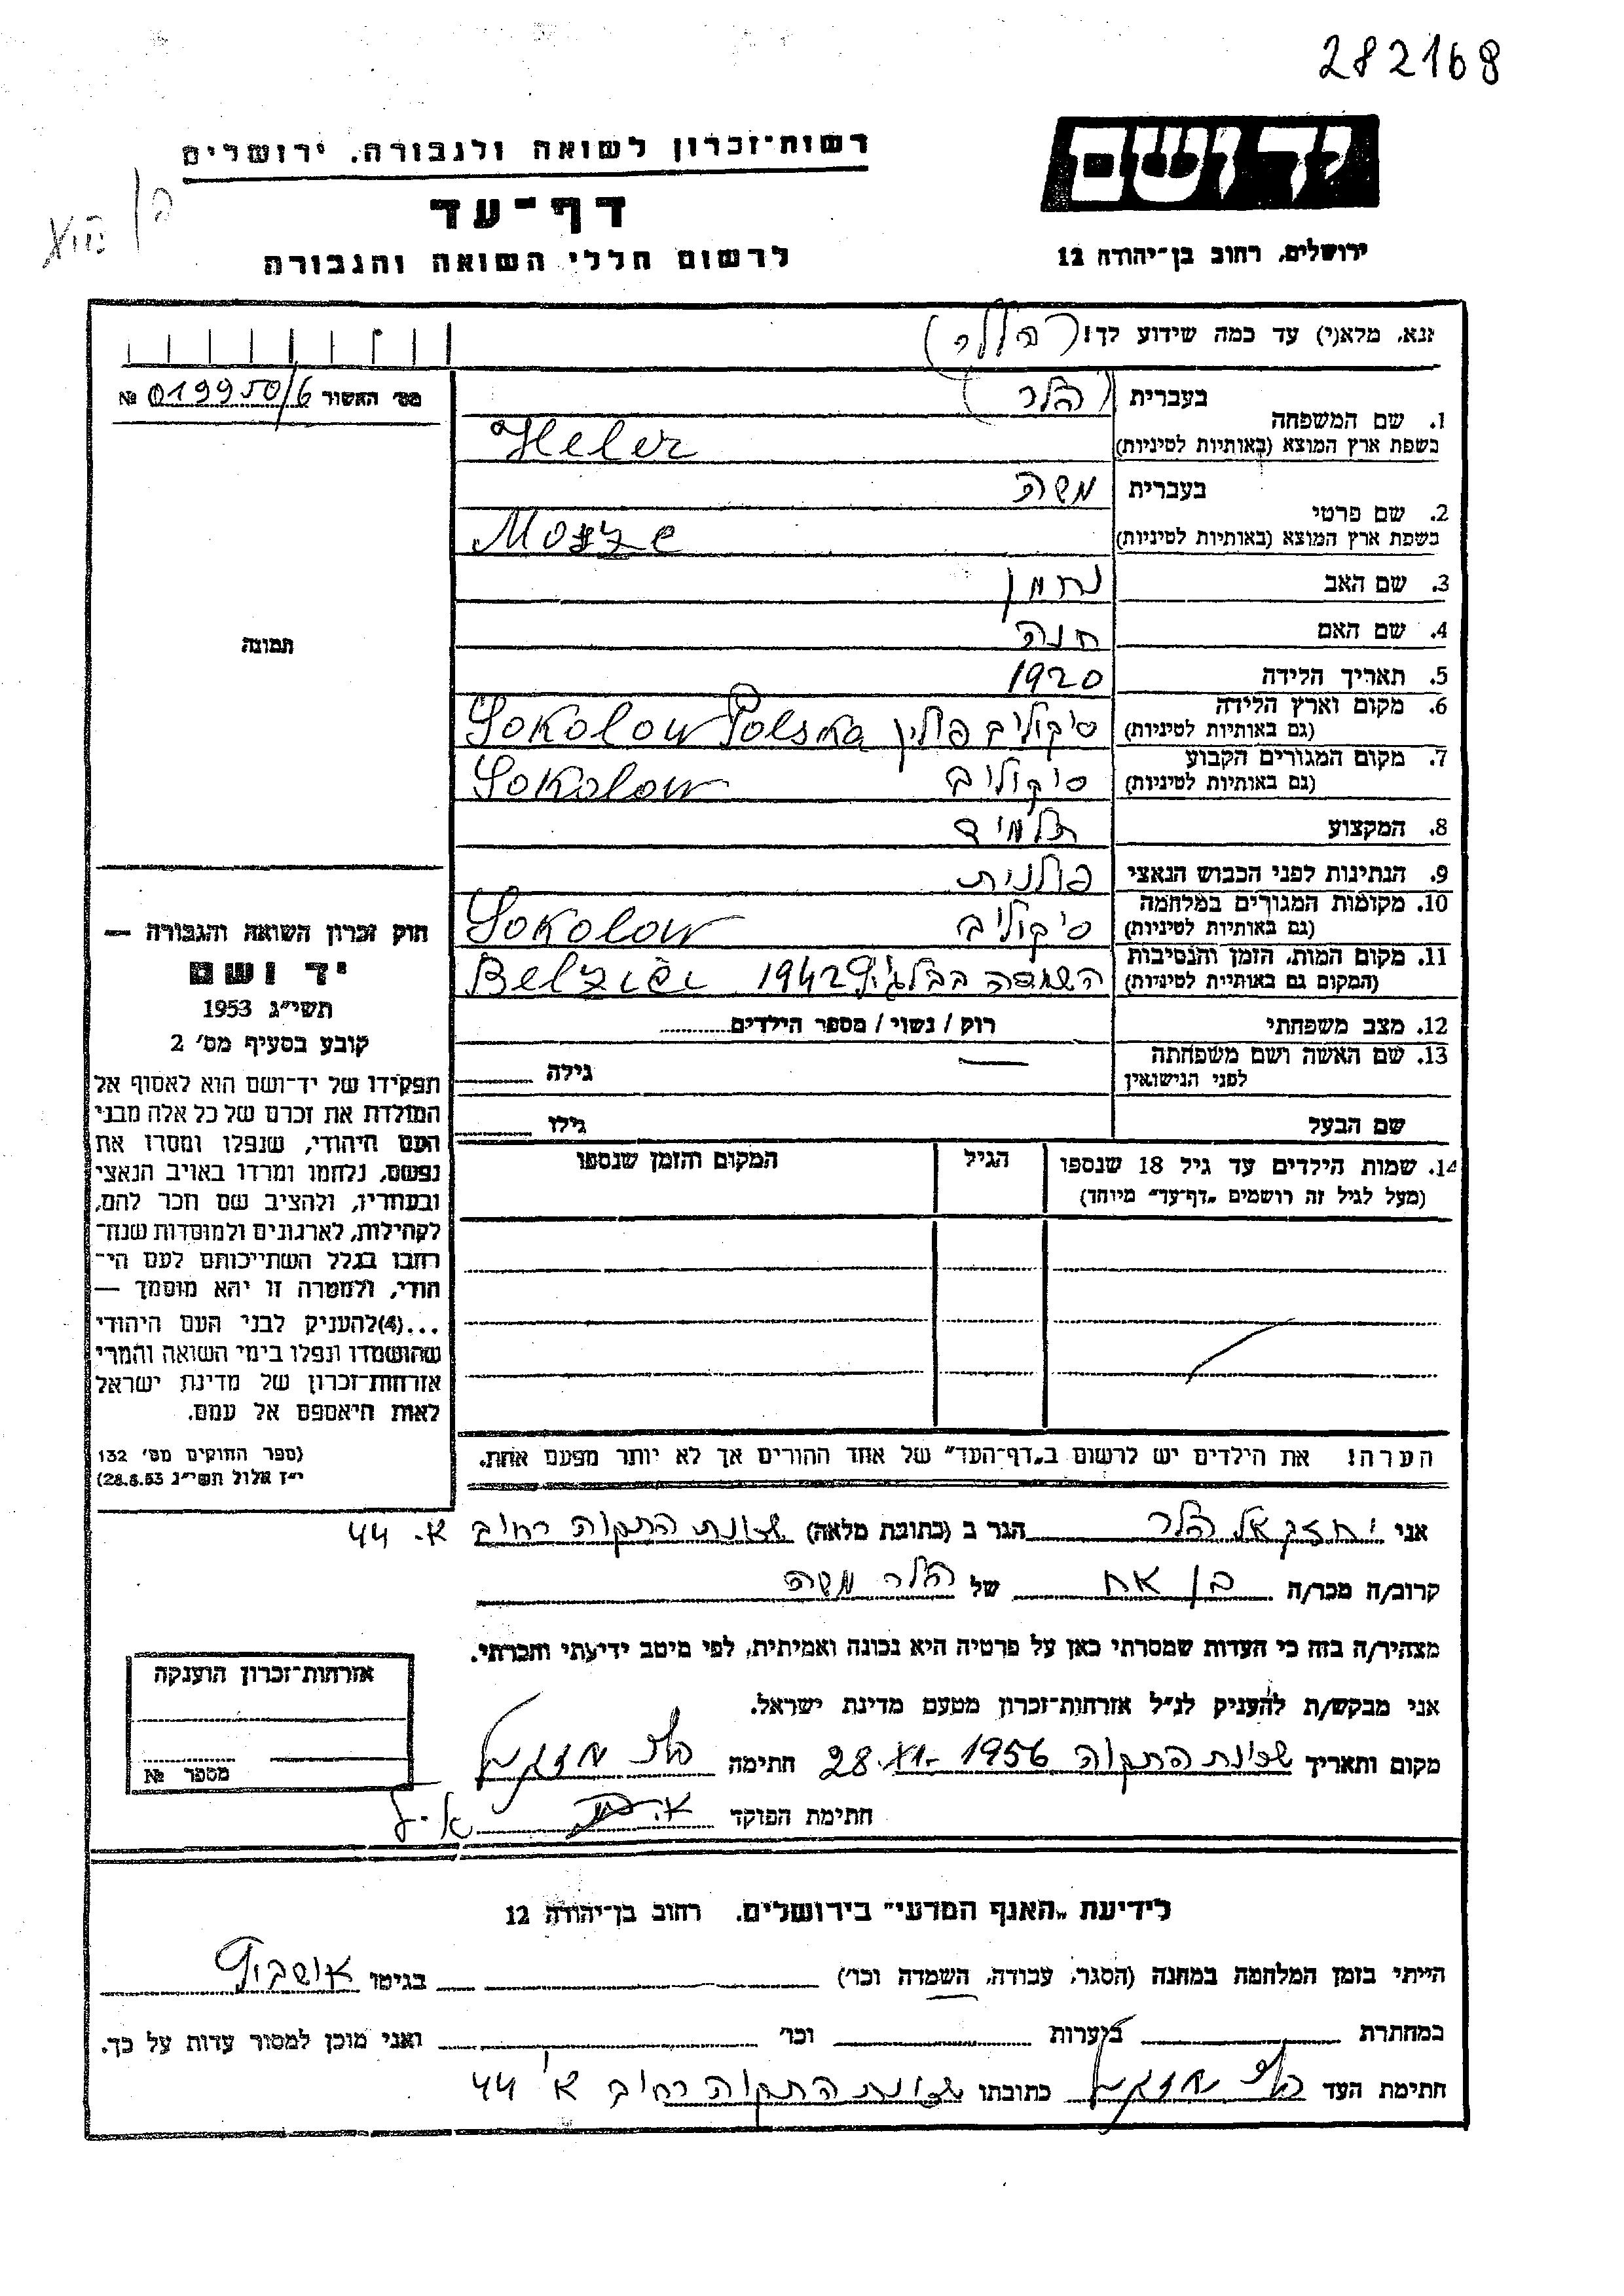 282168
יד ושם
רשות־זכרון לשואה ולגבורה, ירושלים
דף־עד
לרשום חללי השואה והגבורה
ירושלים, רחוב בן־יהודה 12
אנא, מלא(י) עד כמה שידוע לך! (הללר)
מס׳ האשור № 019950/6
1. שם המשפחה
בעברית (הלר)
בשפת ארץ המוצא (באותיות לטיניות) Heler
2. שם פרטי
בעברית משה
בשפת ארץ המוצא (באותיות לטיניות) Mosze
3. שם האב נחמן
4. שם האם חנה
5. תאריך הלידה 1920
6. מקום וארץ הלידה
(גם באותיות לטיניות) סיקוליב פולין Sokolow Polska
7. מקום המגורים הקבוע
(גם באותיות לטיניות) סיקוליב Sokolow
8. המקצוע תלמיד
9. הנתינות לפני הכבוש הנאצי פולנית
10. מקומות המגורים במלחמה
(גם באותיות לטיניות) סיקוליב Sokolow
11. מקום המות, הזמן והנסיבות
(המקום גם באותיות לטיניות) השמדה 1942
12. מצב משפחתי רוק / נשוי / מספר הילדים
13. שם האשה ושם משפחתה
לפני הנישואין גילה
שם הבעל גילו
14. שמות הילדים עד גיל 18 שנספו
(מעל לגיל זה רושמים „דף־עד״ מיוחד)
הגיל
המקום והזמן שנספו
הערה! את הילדים יש לרשום ב„דף־העד״ של אחד ההורים אך לא יותר מפעם אחת.
תמונה
חוק זכרון השואה והגבורה —
יד ושם
תשי״ג 1953
קובע בסעיף מס׳ 2
תפקידו של יד־ושם הוא לאסוף אל
המולדת את זכרם של כל אלה מבני
העם היהודי, שנפלו ומסרו את
נפשם, נלחמו ומרדו באויב הנאצי
ובעוזריו, ולהציב שם וזכר להם,
לקהילות, לארגונים ולמוסדות שנח־
רבו בגלל השתייכותם לעם הי־
הודי, ולמטרה זו יהא מוסמך —
...(4)להעניק לבני העם היהודי
שהושמדו ונפלו בימי השואה והמרי
אזרחות־זכרון של מדינת ישראל
לאות היאספם אל עמם.
(ספר החוקים מס׳ 132
י״ז אלול תשי״ג 28.8.53)
אני יחזקאל הלר הגר ב (כתובת מלאה) שכונת התקוה רחוב א- 44
קרוב/ה מכר/ה בן אח של הלר משה
מצהיר/ה בזה כי העדות שמסרתי כאן על פרטיה היא נכונה ואמיתית, לפי מיטב ידיעתי והכרתי.
אני מבקש/ת להעניק לנ״ל אזרחות־זכרון מטעם מדינת ישראל.
מקום ותאריך שכונת התקוה 28.XI.1956 חתימה
חתימת הפוקד
אזרחות־זכרון הוענקה
מספר №
לידיעת „האגף המדעי״ בירושלים, רחוב בן־יהודה 12
הייתי בזמן המלחמה במחנה (הסגר, עבודה, השמדה וכו׳) בגיטו אושביץ
במחתרת ביערות וכו׳ ואני מוכן למסור עדות על כך.
חתימת העד כתובתו שכונת התקוה רחוב א' 44